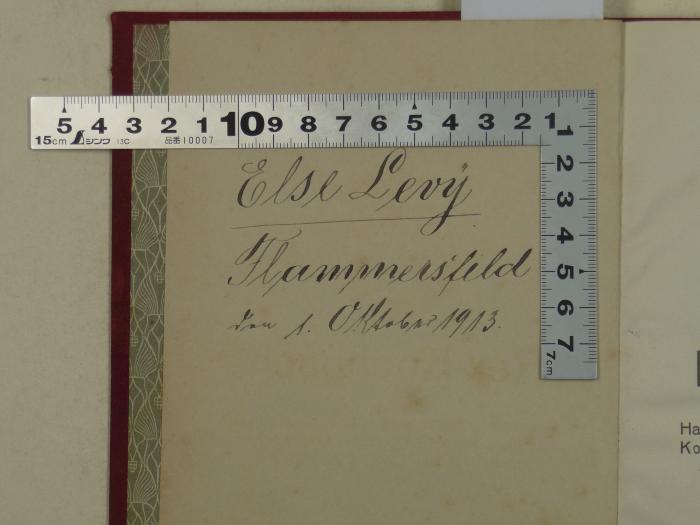 5 4 3 2 1 10 9 8 7 6 5 4 3 2 1
15cm シンワ 13C 品番10007
1
2
3
4
5
6
7
7cm
Else Levÿ
Flammersfeld
den 1. Oktober 1913.
Ha
Ko